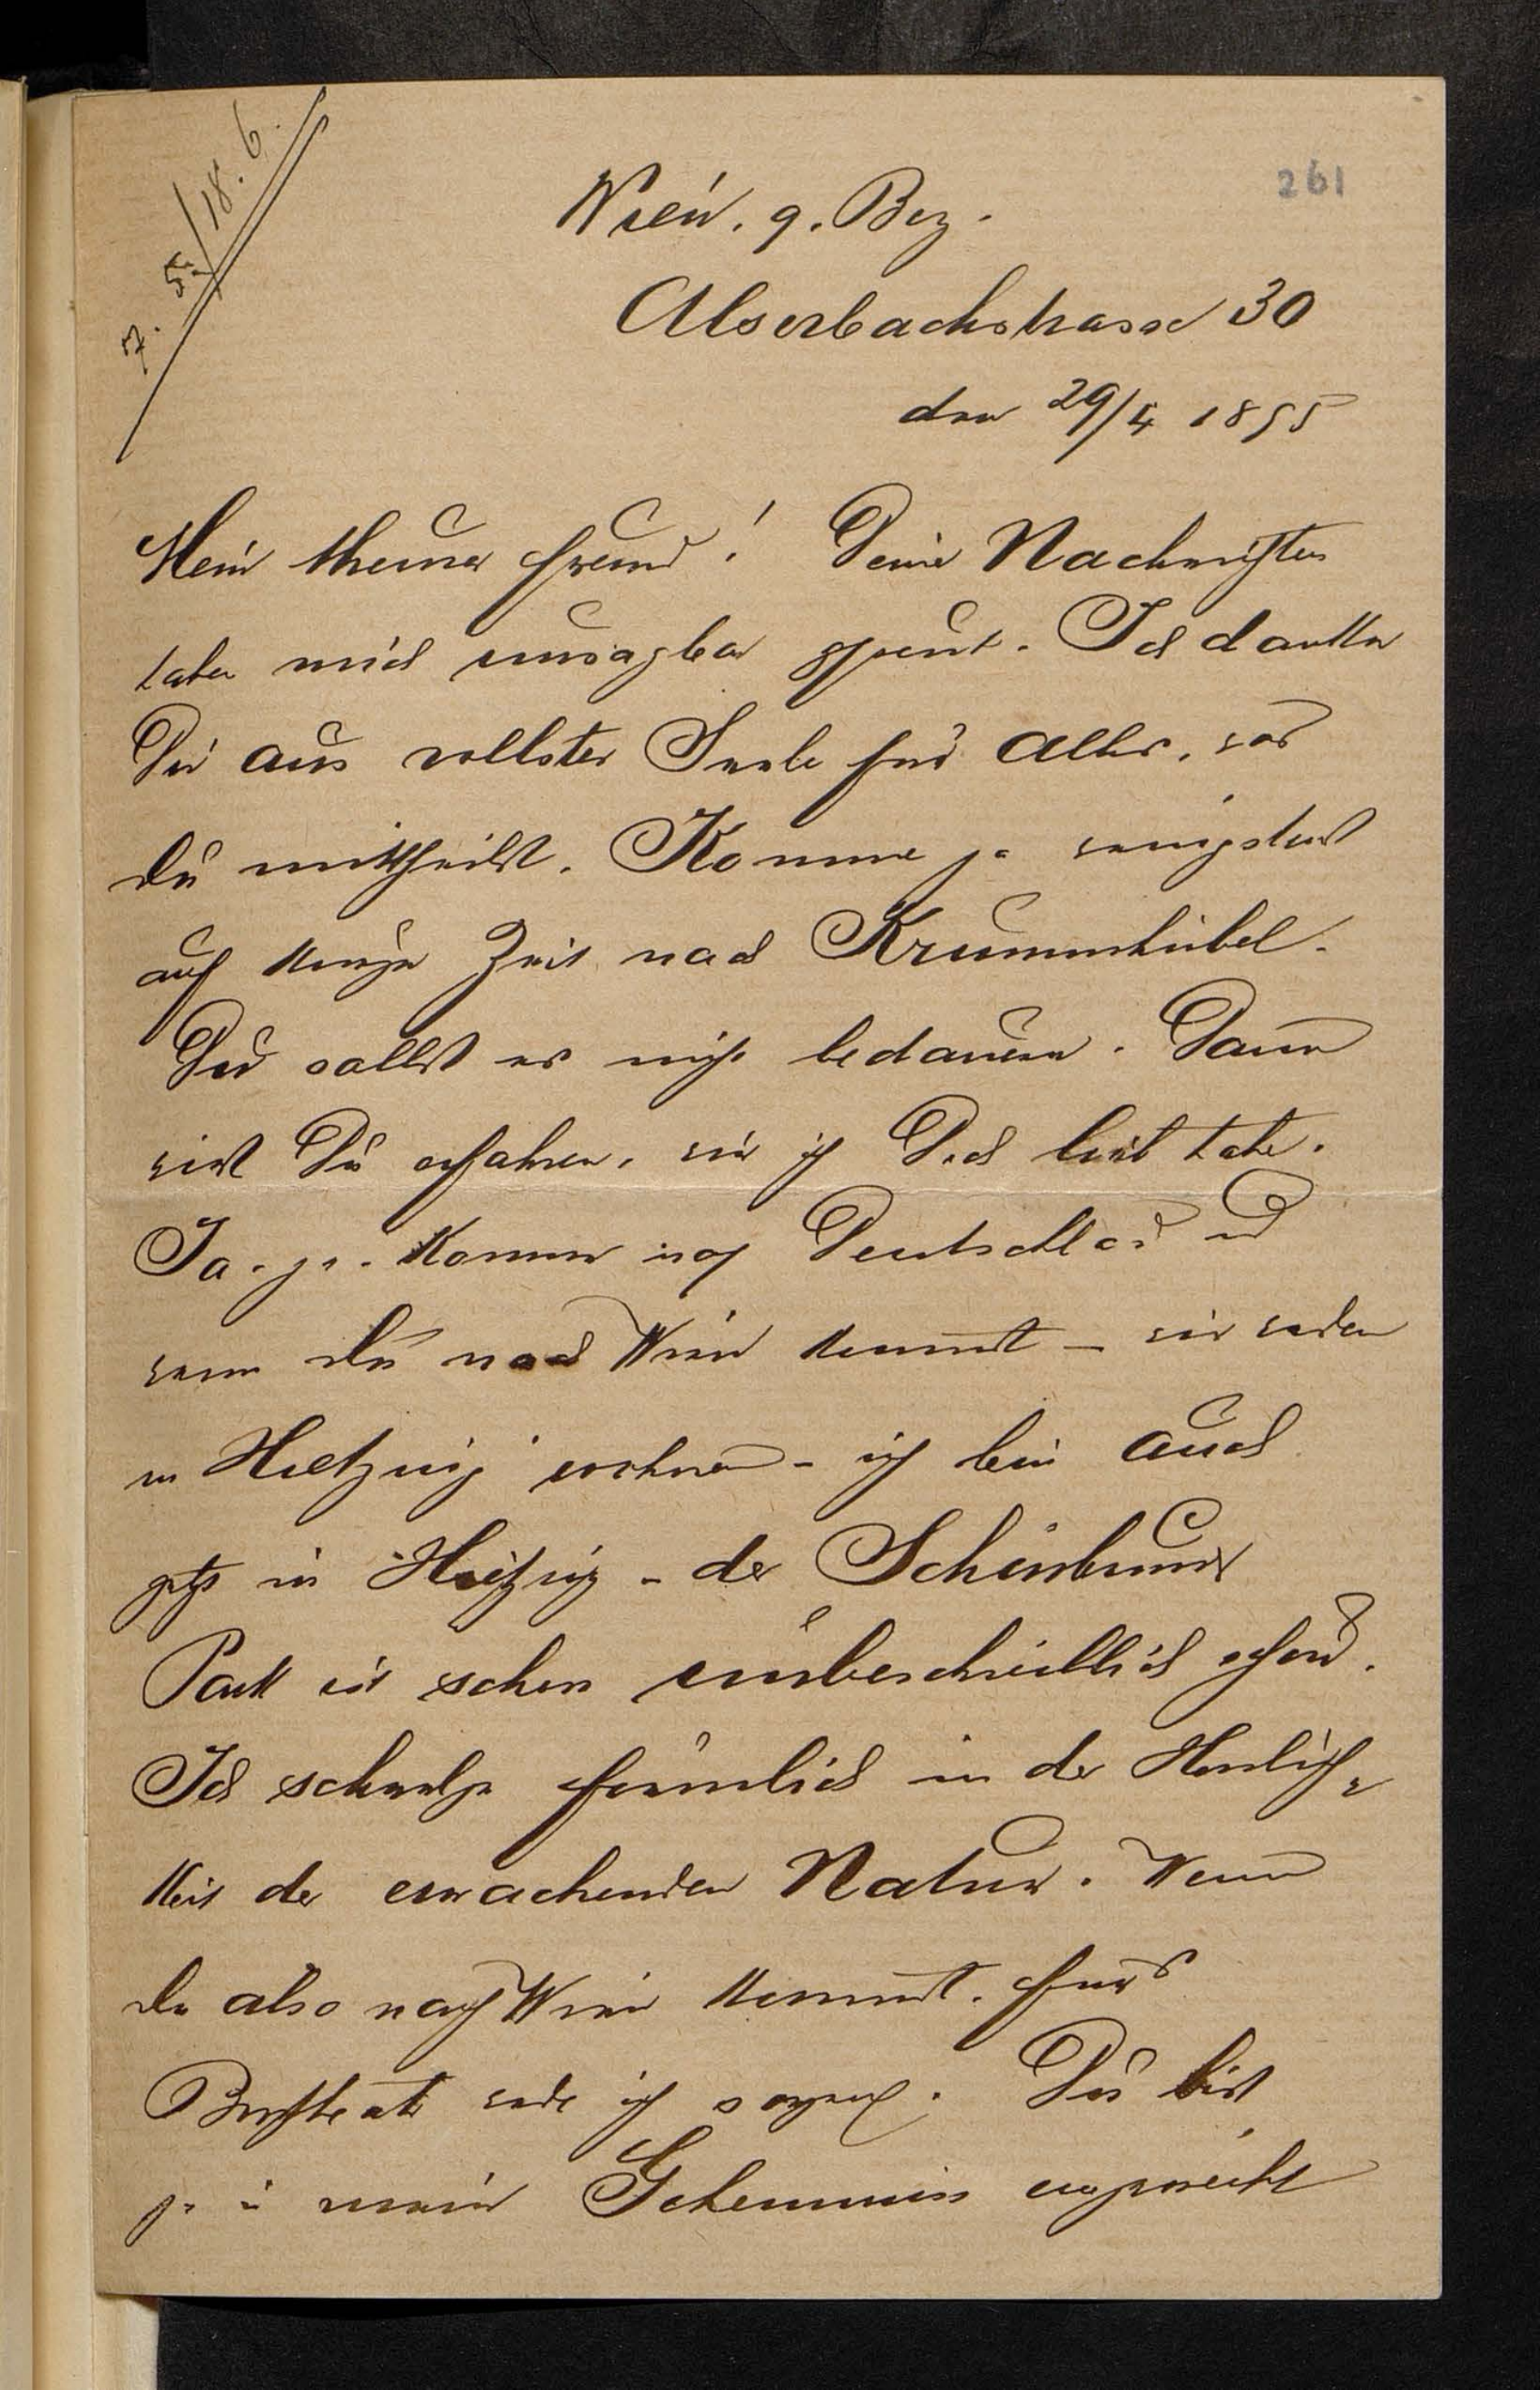 7. 5./18. 6.
261
Wien. 9. Bez.
Alserbachstrasse 30
den 29/4 1895
Mein theurer Freund! Deine Nachrichten
haben mich unsagbar gefreut. Ich danke
Dir aus vollster Seele für Alles, was
Du mittheilst. Komme ja wenigstens
auf kurze Zeit nach Krummhübel.
Du sollst es nicht bedauern. Dann
wirst Du erfahren, wie ich Dich lieb habe.
Ja. ja. Komme nach Deutschland und
wenn Du nach Wien kommst – wir werden
in Hietzing wohnen – ich bin auch
jetzt in Hietzing – der Schönbrunner
Park ist schon unbeschreiblich schön.
Ich schwelge förmlich in der Herrlich-
keit der erwachenden Natur. Wenn
Du also nach Wien kommst. Fürs
werde ich sorgen. Du bist
ja in mein Geheimnis eingeweiht